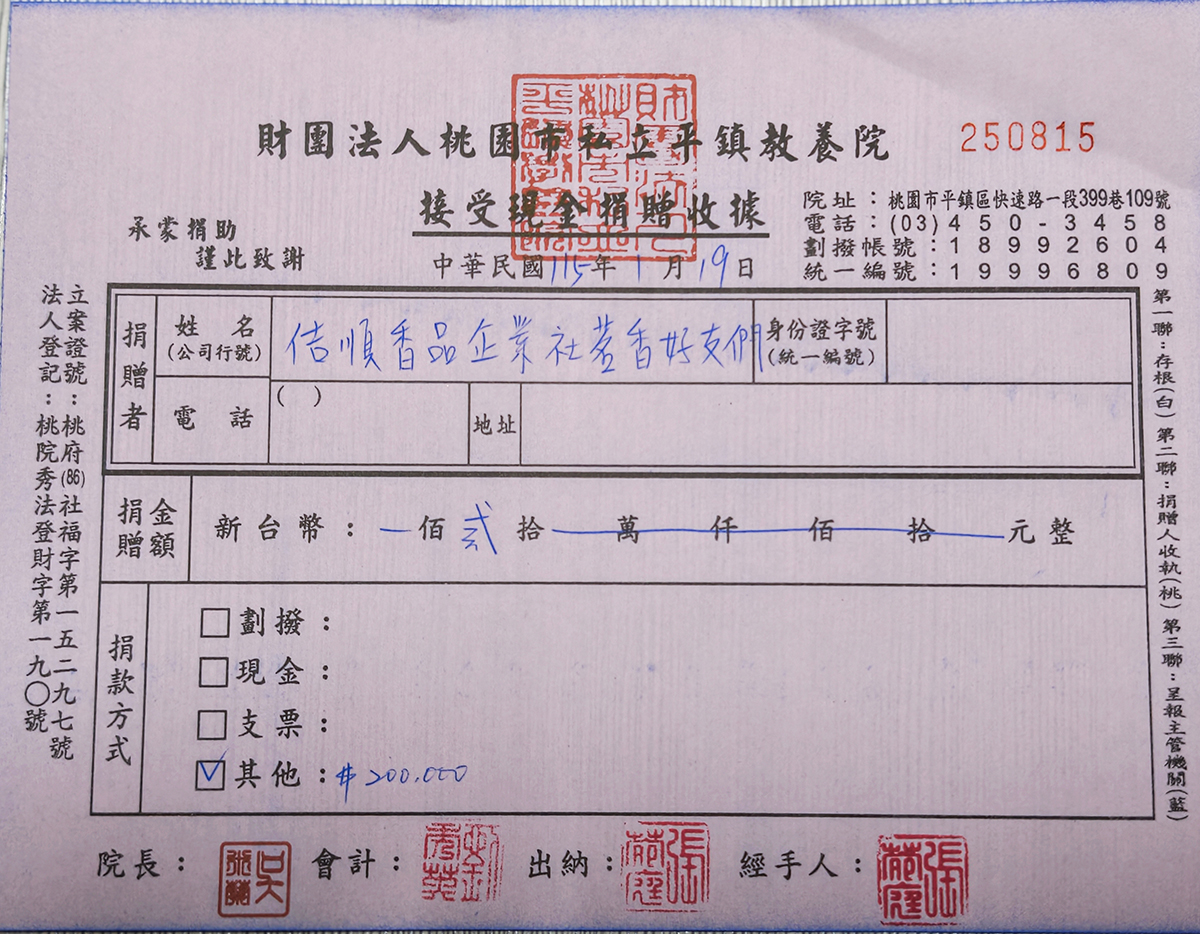 財團法人桃園市私立平鎮教養院
250815
接受現金捐贈收據
承蒙捐助
謹此致謝
中華民國115年1月19日
院址：桃園市平鎮區快速路一段399巷109號
電話：(03)450-3458
劃撥帳號：18992604
統一編號：19996809
立案證號：桃府(86)社福字第一五二九七號
法人登記：桃院秀法登財字第一九〇號
捐贈者
姓名
(公司行號)
佶順香品企業社惹香好友們
身份證字號
(統一編號)
電話
( )
地址
捐贈金額
新台幣：一佰貳拾萬仟佰拾元整
捐款方式
劃撥：
現金：
支票：
其他：#200.000
第一聯：存根(白) 第二聯：捐贈人收執(桃) 第三聯：呈報主管機關(藍)
院長：
會計：
出納：
經手人：